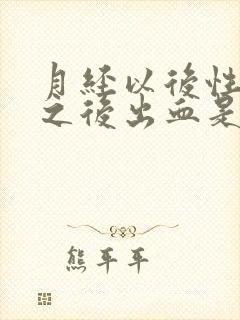 月經以後性
之後出血是
熊平平